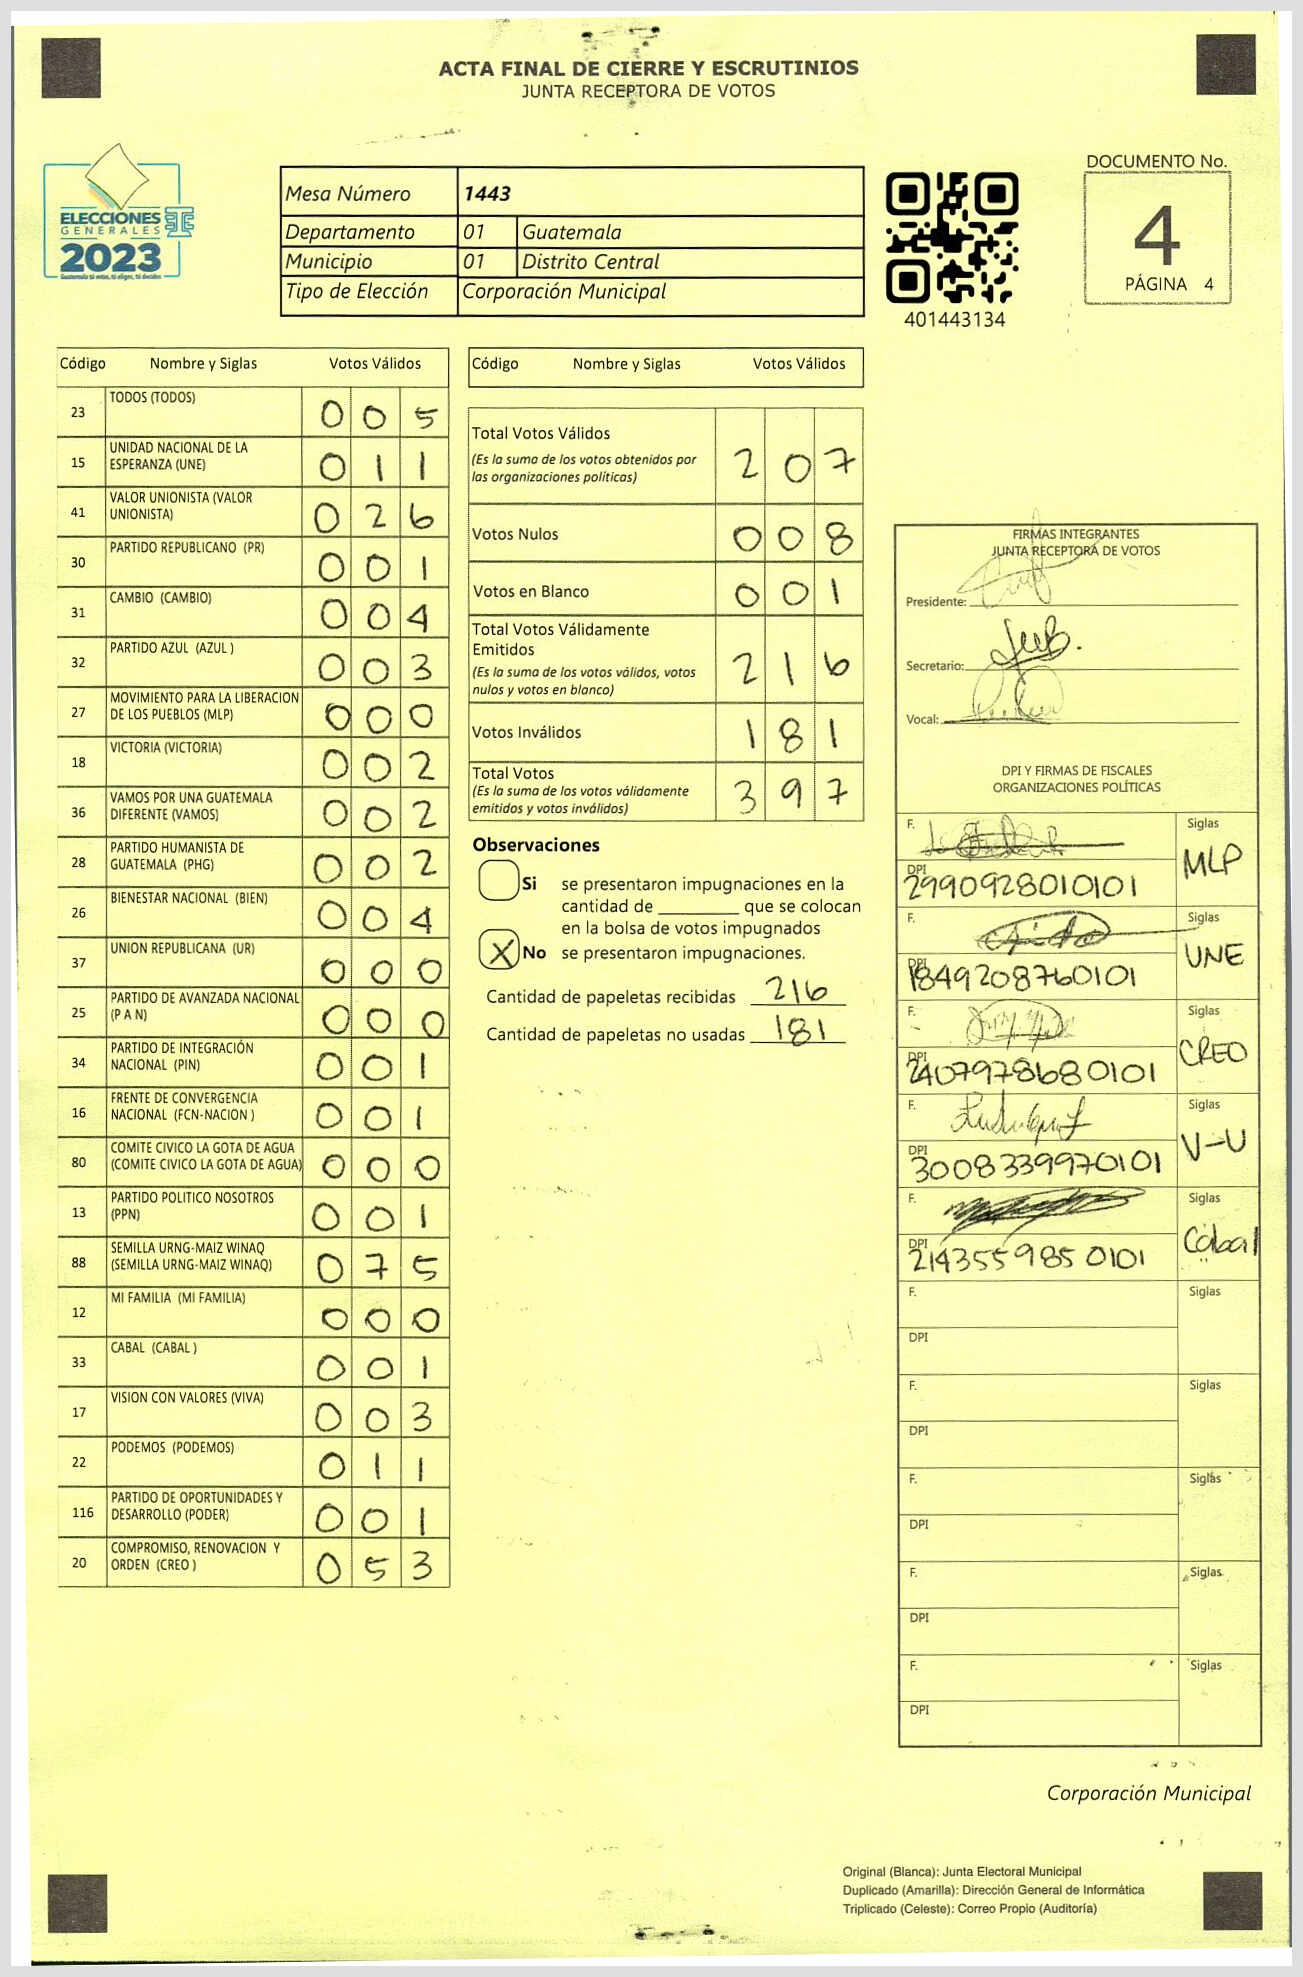 ACTA FINAL DE CIERRE Y ESCRUTINIOS
JUNTA RECEPTORA DE VOTOS
ELECCIONES
GENERALES
2023
Mesa Número 1443
Departamento 01 Guatemala
Municipio 01 Distrito Central
Tipo de Elección Corporación Municipal
401443134
DOCUMENTO No.
4
PÁGINA 4
Código Nombre y Siglas Votos Válidos
23 TODOS (TODOS) 0 0 5
15 UNIDAD NACIONAL DE LA
ESPERANZA (UNE) 0 1 1
41 VALOR UNIONISTA (VALOR
UNIONISTA) 0 2 6
30 PARTIDO REPUBLICANO (PR) 0 0 1
31 CAMBIO (CAMBIO) 0 0 4
32 PARTIDO AZUL (AZUL ) 0 0 3
27 MOVIMIENTO PARA LA LIBERACION
DE LOS PUEBLOS (MLP) 0 0 0
18 VICTORIA (VICTORIA) 0 0 2
36 VAMOS POR UNA GUATEMALA
DIFERENTE (VAMOS) 0 0 2
28 PARTIDO HUMANISTA DE
GUATEMALA (PHG) 0 0 2
26 BIENESTAR NACIONAL (BIEN) 0 0 4
37 UNION REPUBLICANA (UR) 0 0 0
25 PARTIDO DE AVANZADA NACIONAL
(P A N) 0 0 0
34 PARTIDO DE INTEGRACIÓN
NACIONAL (PIN) 0 0 1
16 FRENTE DE CONVERGENCIA
NACIONAL (FCN-NACION ) 0 0 1
80 COMITE CIVICO LA GOTA DE AGUA
(COMITE CIVICO LA GOTA DE AGUA) 0 0 0
13 PARTIDO POLITICO NOSOTROS
(PPN) 0 0 1
88 SEMILLA URNG-MAIZ WINAQ
(SEMILLA URNG-MAIZ WINAQ) 0 7 5
12 MI FAMILIA (MI FAMILIA) 0 0 0
33 CABAL (CABAL ) 0 0 1
17 VISION CON VALORES (VIVA) 0 0 3
22 PODEMOS (PODEMOS) 0 1 1
116 PARTIDO DE OPORTUNIDADES Y
DESARROLLO (PODER) 0 0 1
20 COMPROMISO, RENOVACION Y
ORDEN (CREO ) 0 5 3
Código Nombre y Siglas Votos Válidos
Total Votos Válidos
(Es la suma de los votos obtenidos por
las organizaciones políticas) 2 0 7
Votos Nulos 0 0 8
Votos en Blanco 0 0 1
Total Votos Válidamente
Emitidos
(Es la suma de los votos válidos, votos
nulos y votos en blanco) 2 1 6
Votos Inválidos 1 8 1
Total Votos
(Es la suma de los votos válidamente
emitidos y votos inválidos) 3 9 7
Observaciones
Si se presentaron impugnaciones en la
cantidad de ________ que se colocan
en la bolsa de votos impugnados
X No se presentaron impugnaciones.
Cantidad de papeletas recibidas 216
Cantidad de papeletas no usadas 181
FIRMAS INTEGRANTES
JUNTA RECEPTORA DE VOTOS
Presidente:
Secretario:
Vocal:
DPI Y FIRMAS DE FISCALES
ORGANIZACIONES POLÍTICAS
F. Siglas
DPI 2990928010101 MLP
F. Siglas
DPI 1849208760101 UNE
F. Siglas
DPI 2407978680101 CREO
F. Siglas
DPI 3008339970101 V-U
F. Siglas
DPI 2143559850101 Cabal
F. Siglas
DPI
F. Siglas
DPI
F. Siglas
DPI
F. Siglas
DPI
F. Siglas
DPI
Corporación Municipal
Original (Blanca): Junta Electoral Municipal
Duplicado (Amarilla): Dirección General de Informática
Triplicado (Celeste): Correo Propio (Auditoría)